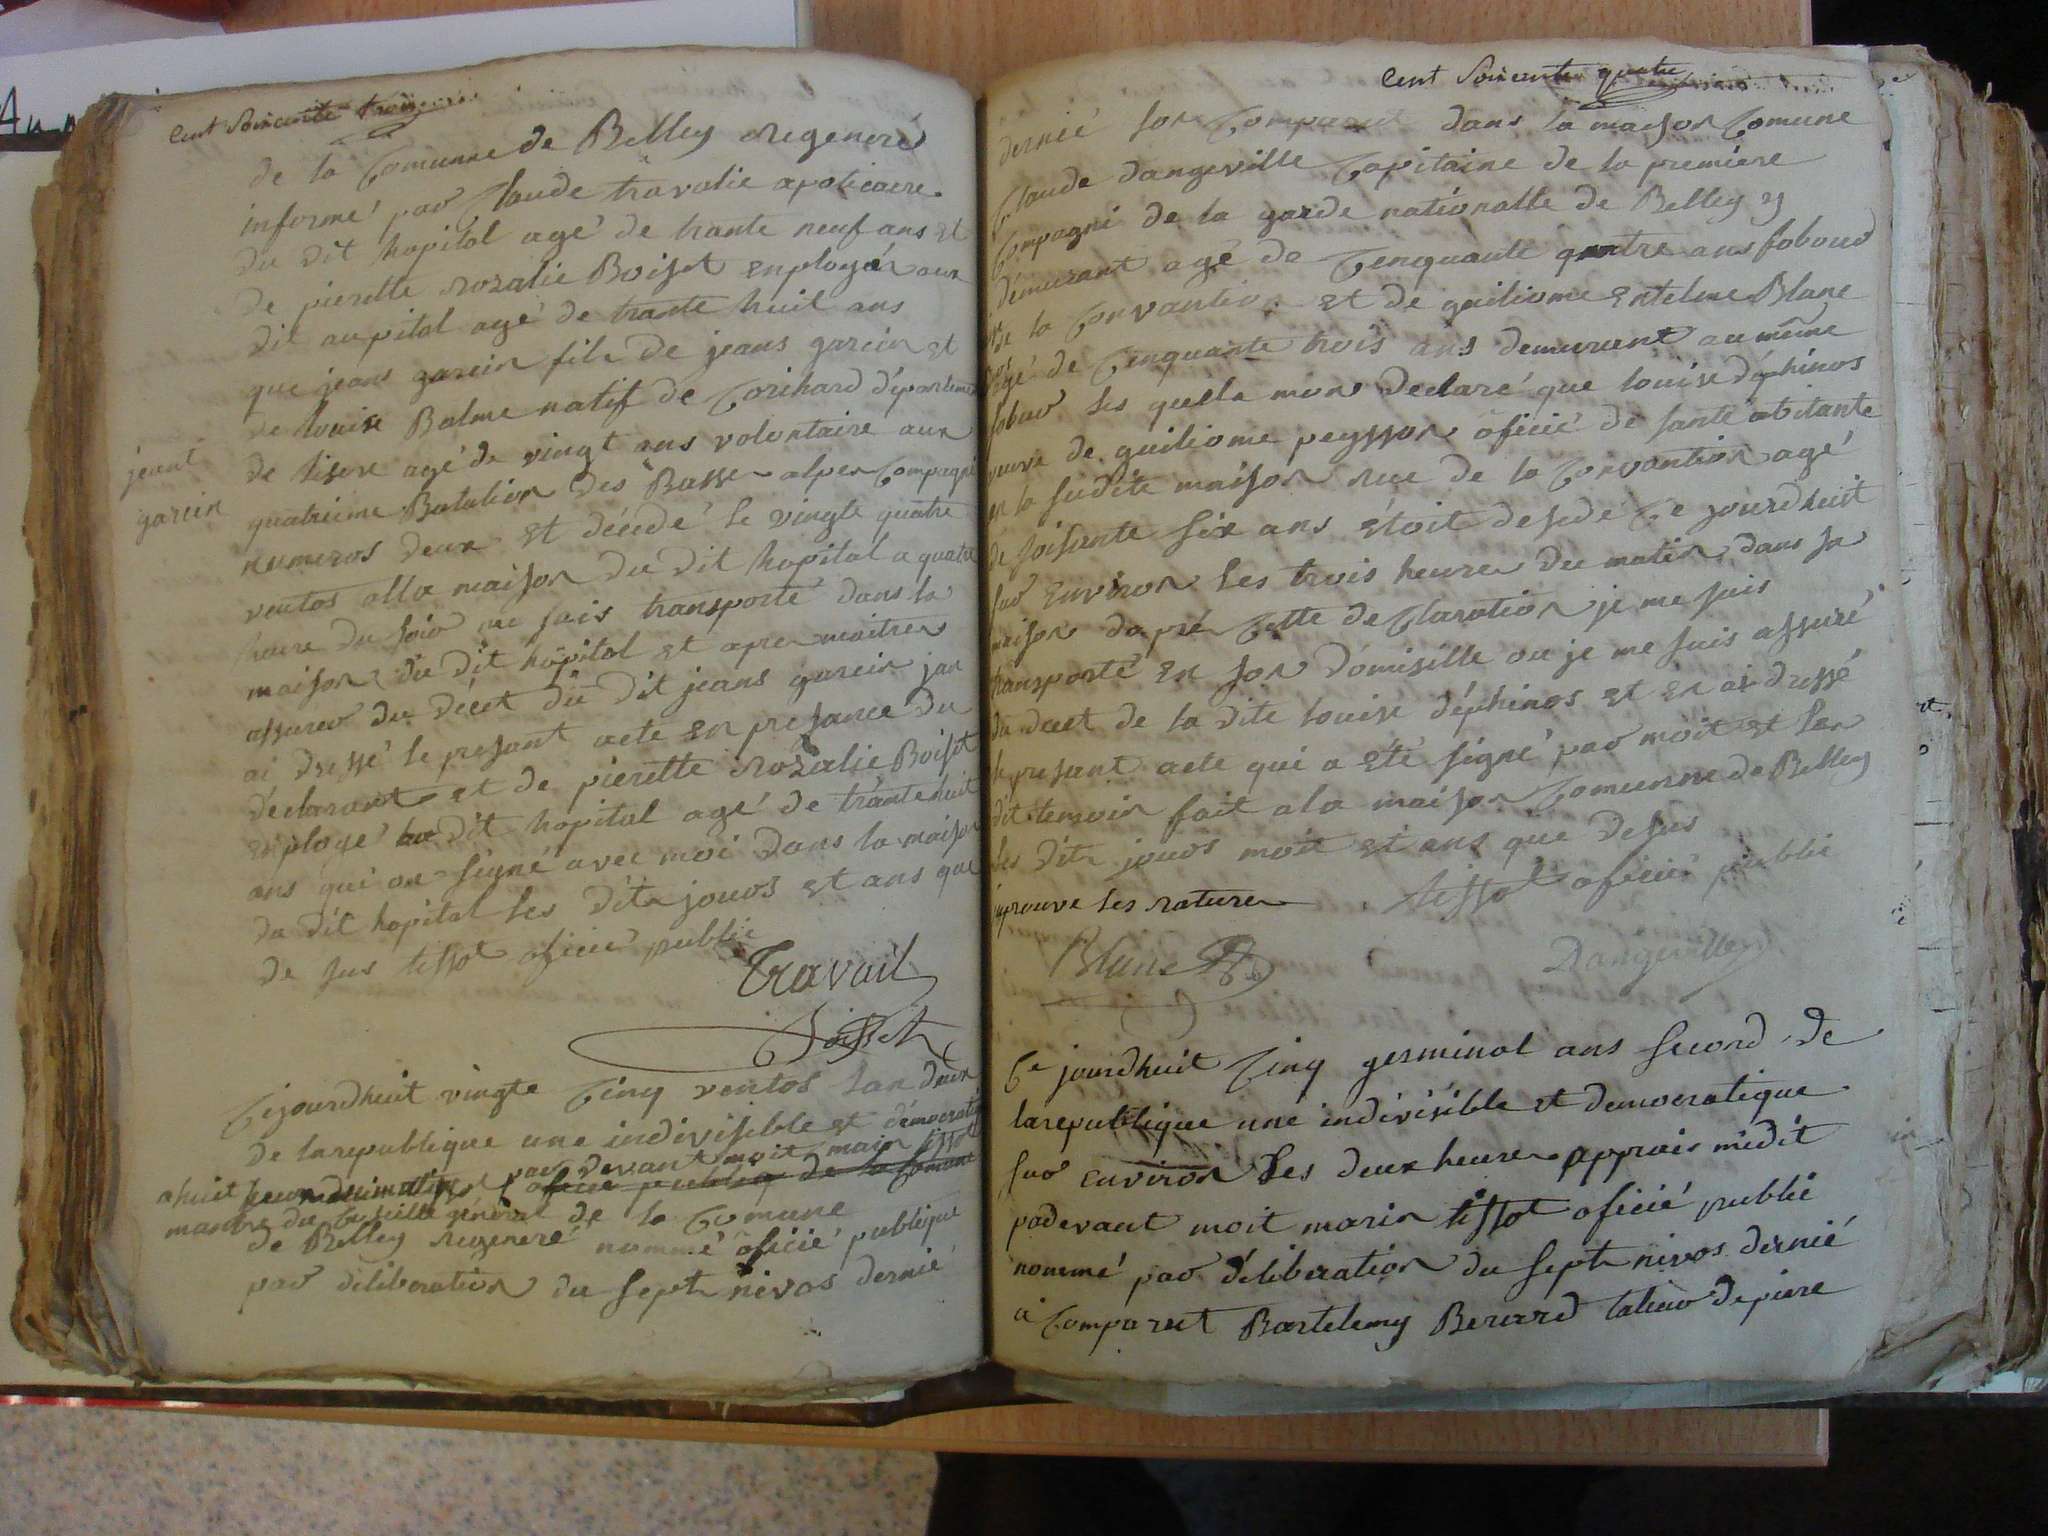 Cent Soixante trois
de la Comunne de Belley regeneré
informé par Claude travalie apoticaire
du dit hopital agé de trante neuf ans et
de pierette rozalie Boiset employér aux
dit aupital agé de trante huit ans
que jeans garcin fils de jeans garcin et
de louise Balme natif de Corihard départemen
jeant
garcin
de lisere agé de vingt ans volontaire aux
quatrieme Batalion des Basse alper Compagni
numeros deux et décédé le vingte quatre
ventos alla maison du dit hopital a quatre
heure du soir me suis transporté dans la
maison du dit hôpital et apre maitres
assurer du décet du dit jeans garcin jan
ai dressé le presant acte en presance du
déclarant et de pierette rozalie Boiset
employé au dit hopital agé de trante huit
ans qui on signé avec moi dans la maison
du dit hopital les dits jours et ans que
de sus tissot oficié public
Travail
Boisset
Cejourdhuit vingte Cinq ventos lan deux
de larepublique une indivisible et démocrati
par devant moit marin tissot
a huit heure du matin oficié publiq de la Comune
manbre du Conseille général de la Comune
de Belley regeneré nommé oficié publique
par déliberation du sept nivos dernié
Cent Soixante quatre
dernié son Comparut dans la maison Comune
Claude dangeville Capitaine de la premiére
Compagni de la garde nationalle de Belley y
démurant agé de Cenquante quatre ans fobour
de la Convantion et de guiliome Entelme Blanc
agé de Cenquante trois ans demurent au même
fobour les quels mon declaré que louise déphinos
veuve de guiliome peysson oficié de santé abitante
en la sudite maison rue de la Convantion agé
de soisante six ans étoit desedé Ce jourdhuit
sur environ les trois heure du matin dans sa
maison dapré Cette declaration je me suis
transporté en son domisille ou je me suis assuré
du decet de la dite louise déphinos et en ai dressé
le presant acte qui a été signé par moit et les
dit temoin fait a la maison Comunne de Belley
les dits jours moit et ans que desus
aprouve les rature tissot oficié public
Blanc Dangeville
Ce jourdhuit Cinq germinal ans second de
larepublique une indivisible et democratique
sur environ les deux heure apprais midit
padevant moit marin tissot oficié public
nommé par déliberation du sept nivos dernié
a Comparut Bartelemy Berard talieur de piere